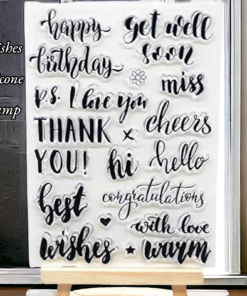 ishes
cone
amp
happy
birthday
get well
soon
miss
p.s. I love you
THANK x
YOU!
cheers
hi
hello
best
congratulations
with love
wishes
warm